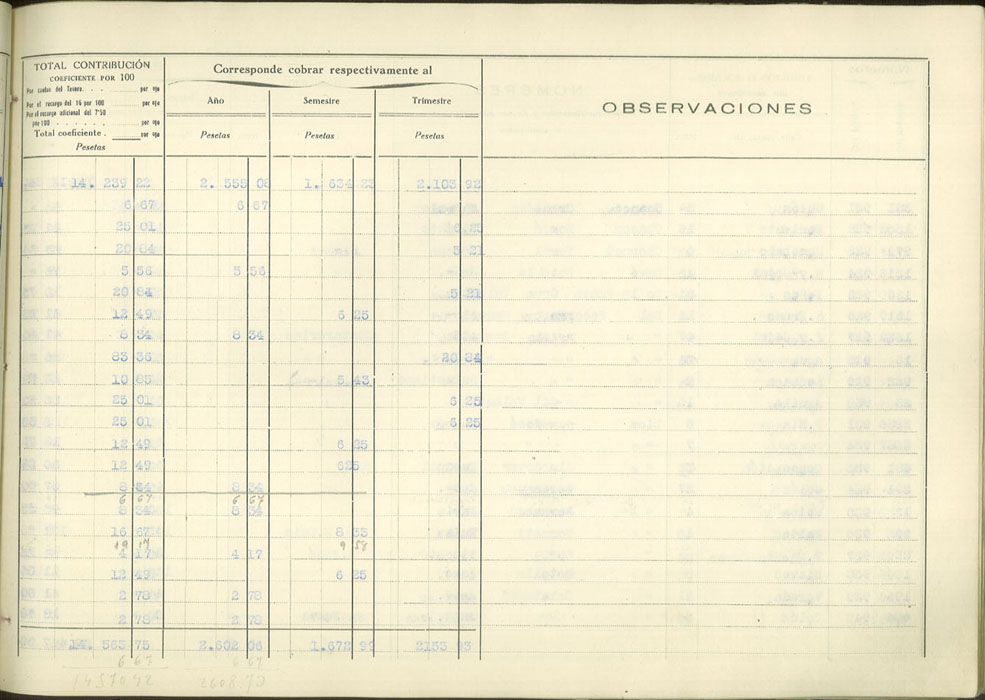 TOTAL CONTRIBUCIÓN
COEFICIENTE POR 100
Por cuotas del Tesoro. . . . . . . por %
Por el recargo del 16 por 100 . . . . por %
Por el recargo adicional del 7'50
por 100 . . . . . . por %
Total coeficiente . por %
Pesetas
Corresponde cobrar respectivamente al
Año Semestre Trimestre
Pesetas Pesetas Pesetas
OBSERVACIONES
14. 239 22 2. 555 06 1. 634 2.103 92
6 67 6 67
25 01 6,25
20 84 5 21
5 56 5 56
20 84 5 21
12 49 6 25
8 34 8 34
83 36 20 84
10 85 5 43
25 01 6 25
25 01 6 25
12 49 6 25
12 49 625
8 34 8 34
6 67 6 67
8 34 8 34
16 67 8 33
19 17 9 58
4 17 4 17
12 49 6 25
2 78 2 78
2 78 2 78
14. 563 75 2.602 06 1.672 99 2153 93
6 67 6 67
1457042 2608.73